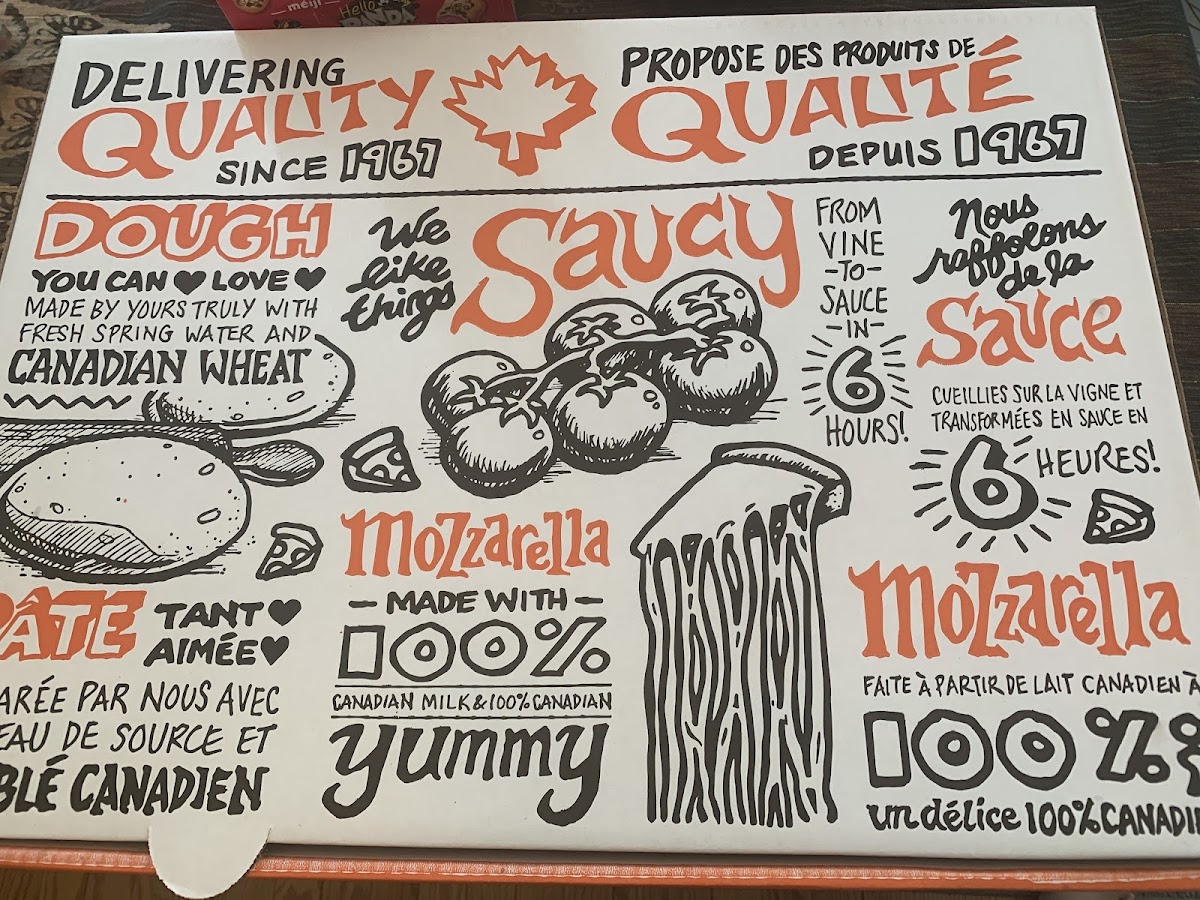 meiji
Hello
PANDA
DELIVERING
QUALITY
SINCE 1967
PROPOSE DES PRODUITS DE
QUALITÉ
DEPUIS 1967
DOUGH
YOU CAN ♥ LOVE ♥
MADE BY YOURS TRULY WITH
FRESH SPRING WATER AND
CANADIAN WHEAT
We
like
things
Saucy
FROM
VINE
-TO-
SAUCE
-IN-
6
HOURS!
Nous
raffolons
de la
Sauce
CUEILLIES SUR LA VIGNE ET
TRANSFORMÉES EN SAUCE EN
6 HEURES!
PÂTE
TANT ♥
AIMÉE ♥
ARÉE PAR NOUS AVEC
EAU DE SOURCE ET
BLÉ CANADIEN
Mozzarella
- MADE WITH -
100%
CANADIAN MILK & 100% CANADIAN
yummy
Mozzarella
FAITE À PARTIR DE LAIT CANADIEN À
100%
un délice 100% CANADI